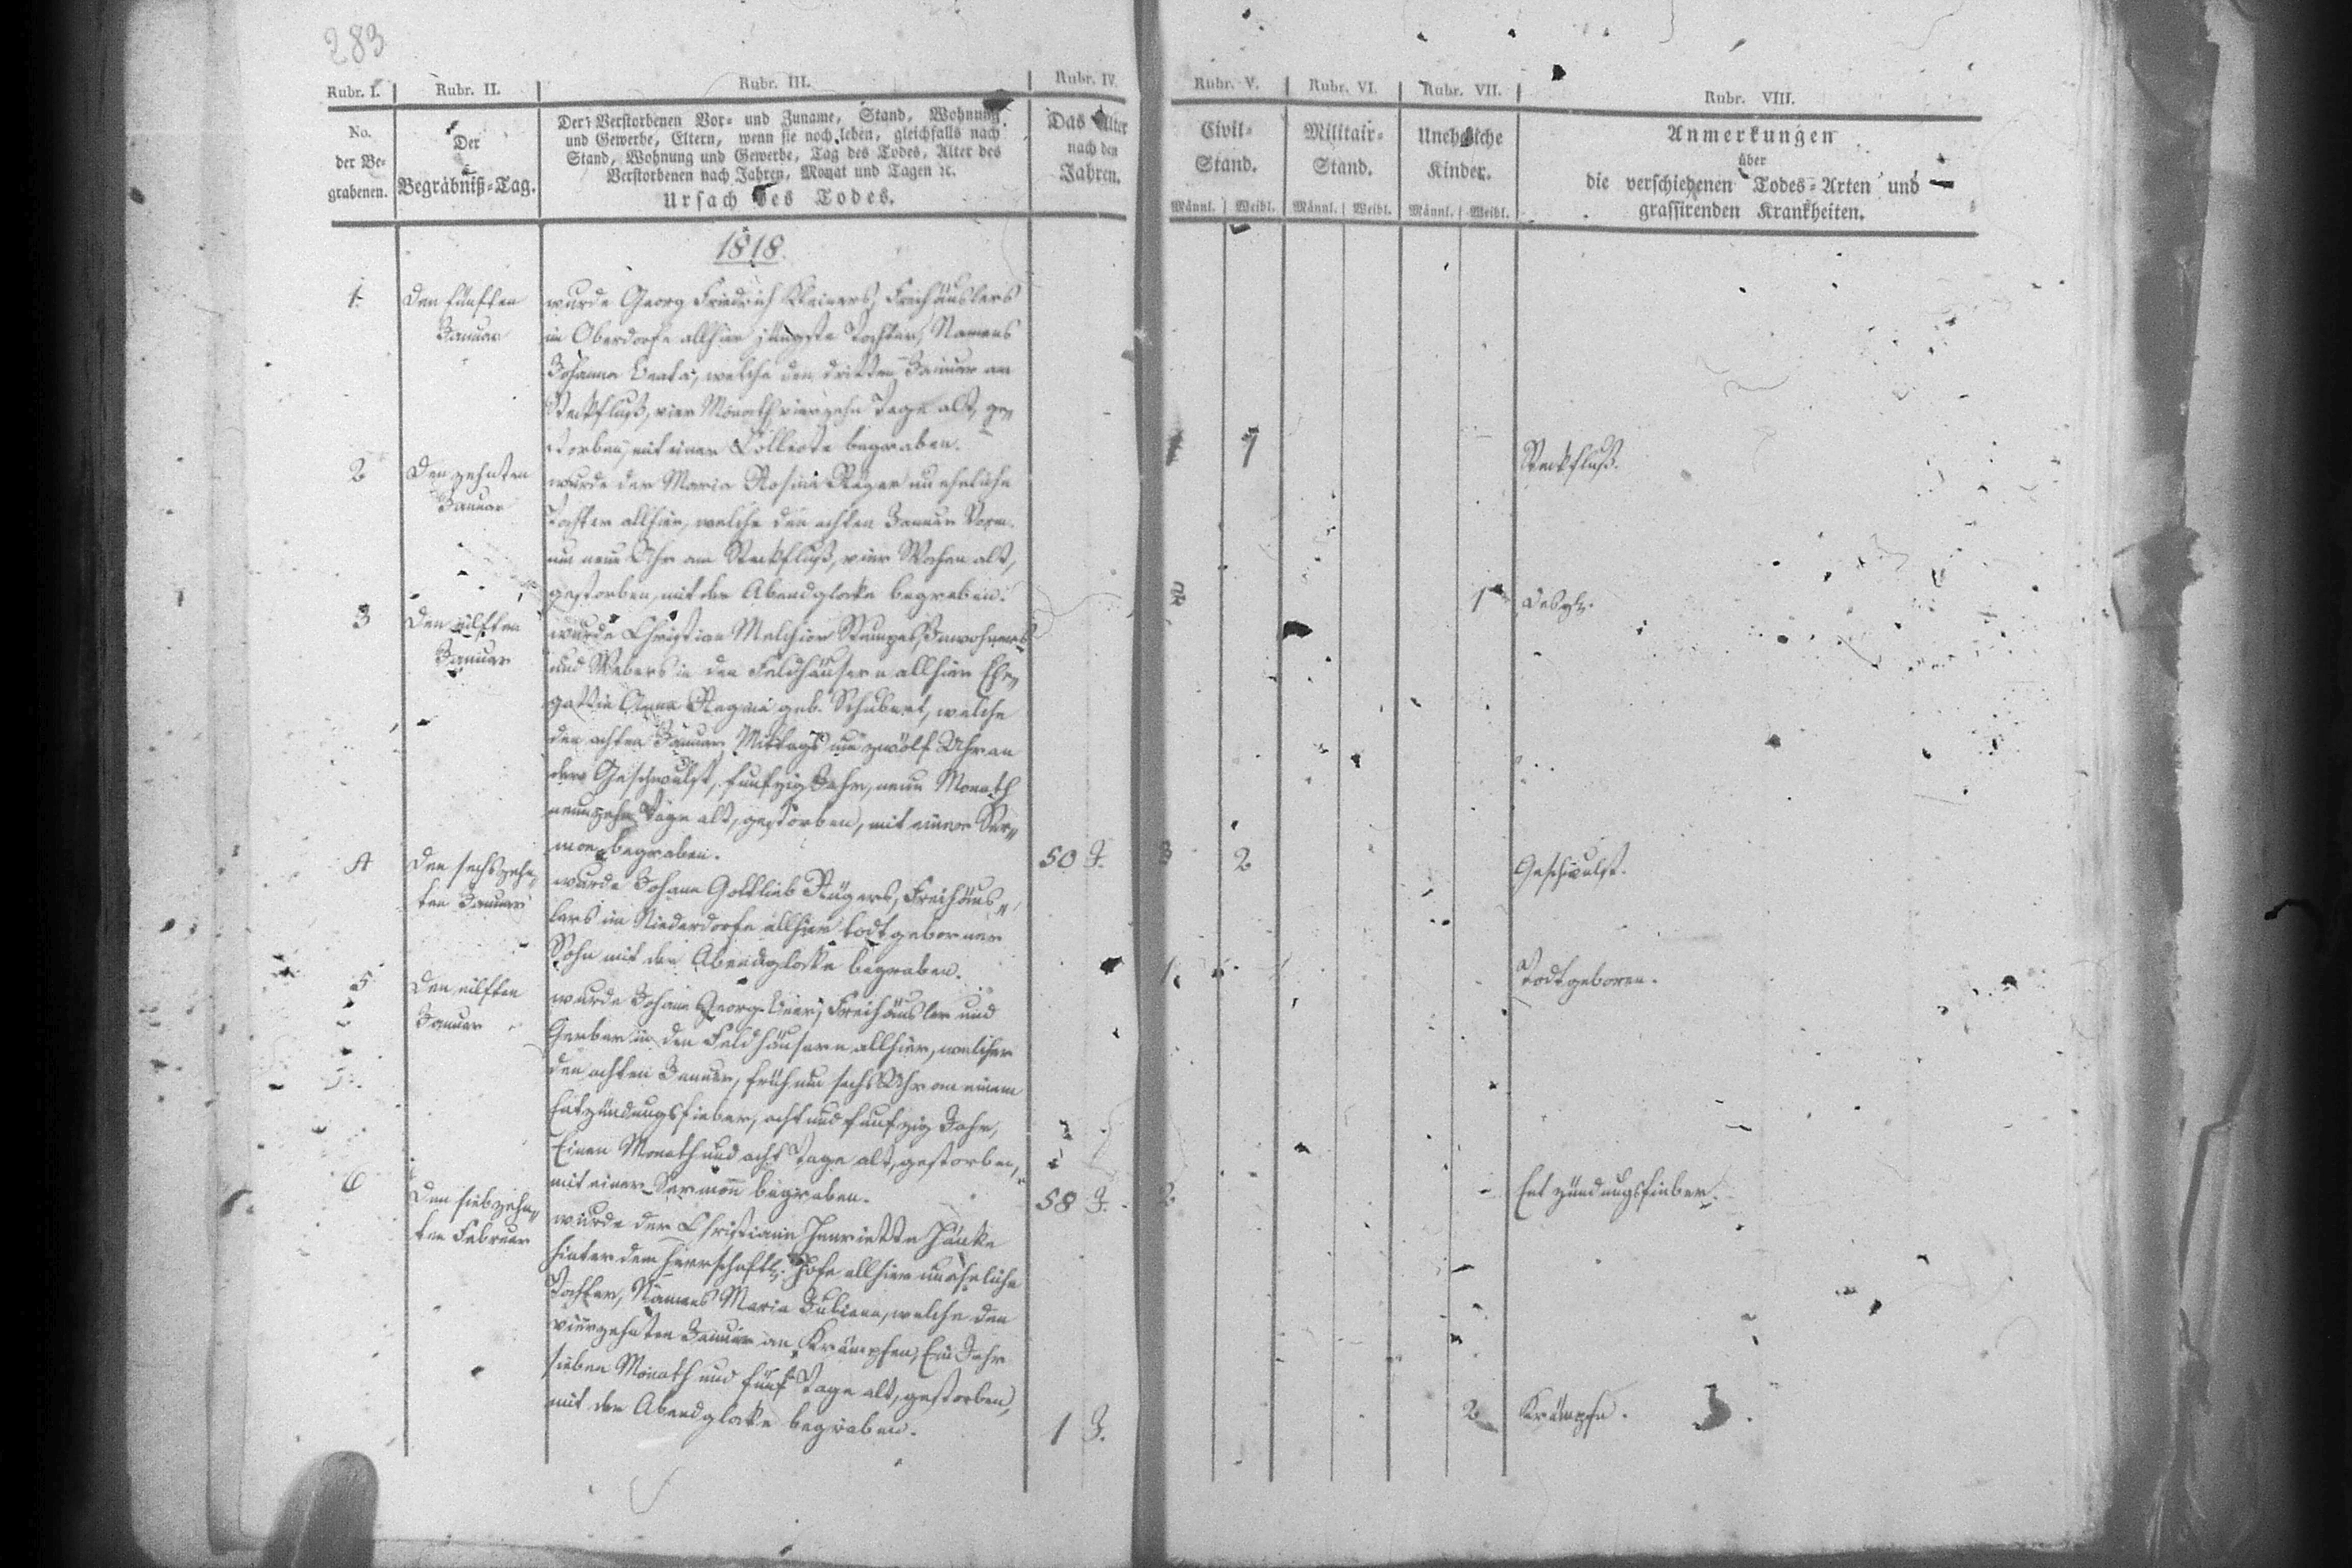 283
Rubr. I. Rubr. II. Rubr. III. Rubr. IV. Rubr. V. Rubr. VI. Rubr. VII. Rubr. VIII.
No.
der Be-
grabenen.
Der
Begräbniß-Tag.
Der Verstorbenen Vor- und Zuname, Stand, Wohnung
und Gewerbe, Eltern, wenn sie noch leben, gleichfalls nach
Stand, Wohnung und Gewerbe, Tag des Todes, Alter des
Verstorbenen nach Jahren, Monat und Tagen ꝛc.
Ursach des Todes.
Das Alter
nach den
Jahren.
Civil-
Stand.
Männl. Weibl.
Militair-
Stand.
Männl. Weibl.
Uneheliche
Kinder.
Männl. Weibl.
Anmerkungen
über
die verschiedenen Todes-Arten und
grassirenden Krankheiten.
1818.
1. Den fünften
Januar
wurde Georg Friedrich Freihäuslers
im Oberdorfe allhier jüngste Tochter, Namens
Johanna Beata, welche den dritten Januar am
Steckfluß, vier Monath vierzehn Tage alt, ge-
storben, mit einer Collecte begraben.
1 Steckfluß.
2 Den zehnten
Januar
wurde der Maria Rosina uneheliche
Tochter allhier, welche den achten Januar Vorm.
um neun Uhr am Steckfluß, vier Wochen alt,
gestorben, mit der Abendglocke begraben.
1 Desgl.
3 Den eilften
Januar
wurde Christian Melchior Inwohners
und Webers in den Feldhäusern allhier Ehe-
gattin Anna Regina geb. Schubert, welche
den achten Januar Mittags um zwölf Uhr an
der Geschwulst, funfzig Jahr, neun Monath
neunzehn Tage alt, gestorben, mit einer Ser-
mon begraben.
50 J. 2 Geschwulst.
4 Den sechszehn-
ten Januar
wurde Johann Gottlieb Freihäus-
lers im Niederdorfe allhier todtgeborner
Sohn mit der Abendglocke begraben.
1. Todtgeboren.
5 Den eilften
Januar
wurde Johann Georg Freihäusler und
Gerber in den Feldhäusern allhier, welcher
den achten Januar, früh um sechs Uhr an einem
Entzündungsfieber, acht und funfzig Jahr,
Einen Monath und acht Tage alt, gestorben,
mit einer Sermon begraben.
58 J. 2. Entzündungsfieber.
6 Den siebzehn-
ten Februar
wurde der Christiane Henriette
hinter dem herrschaftl. Hofe allhier uneheliche
Tochter, Namens Maria Juliana, welche den
vierzehnten Januar an Krämpfen, Ein Jahr
sieben Monath und fünf Tage alt, gestorben,
mit der Abendglocke begraben.
1 J. 2 Krämpfe.